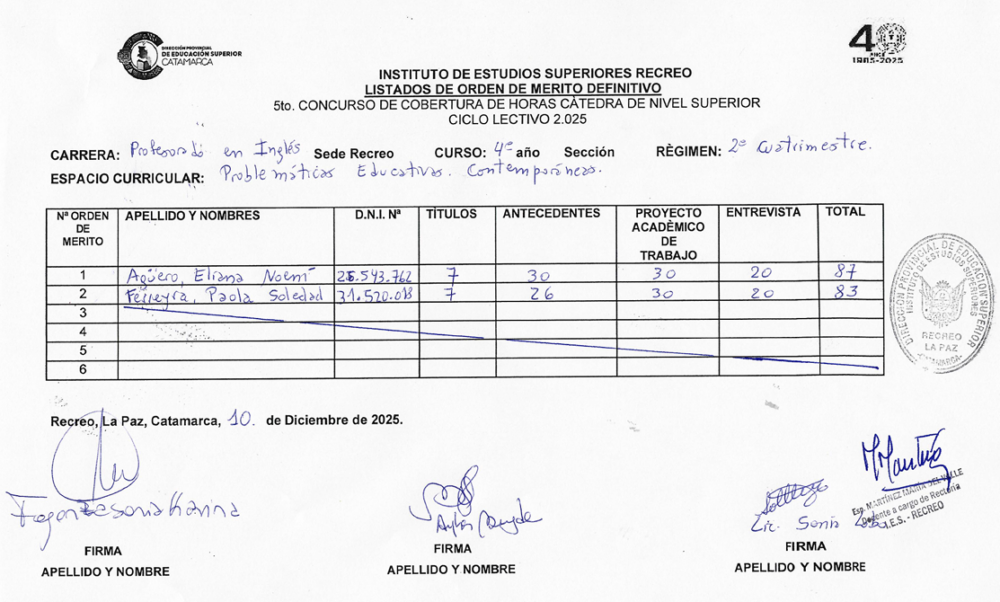 DIRECCIÓN PROVINCIAL
DE EDUCACIÓN SUPERIOR
CATAMARCA
40
1985-2025
INSTITUTO DE ESTUDIOS SUPERIORES RECREO
LISTADOS DE ORDEN DE MERITO DEFINITIVO
5to. CONCURSO DE COBERTURA DE HORAS CÀTEDRA DE NIVEL SUPERIOR
CICLO LECTIVO 2.025
CARRERA: Profesorado en Inglés Sede Recreo CURSO: 4º año Sección RÈGIMEN: 2º Cuatrimestre.
ESPACIO CURRICULAR: Problemáticas Educativas. Contemporáneas.
Nª ORDEN DE MERITO APELLIDO Y NOMBRES D.N.I. Nª TÍTULOS ANTECEDENTES PROYECTO ACADÈMICO DE TRABAJO ENTREVISTA TOTAL
1 Agüero, Eliana Noemí 25.543.762 7 30 30 20 87
2 Ferreyra, Paola Soledad 31.520.018 7 26 30 20 83
3
4
5
6
DIRECCIÓN PROVINCIAL DE EDUCACIÓN SUPERIOR
INSTITUTO DE ESTUDIOS SUPERIORES
RECREO
LA PAZ
CATAMARCA
Recreo, La Paz, Catamarca, 10. de Diciembre de 2025.
Sonia Karina
Lic. Sonia
Esp. MARTÍNEZ MARÍA DEL VALLE
Docente a cargo de Rectoría
I.E.S. - RECREO
FIRMA FIRMA FIRMA
APELLIDO Y NOMBRE APELLIDO Y NOMBRE APELLIDO Y NOMBRE